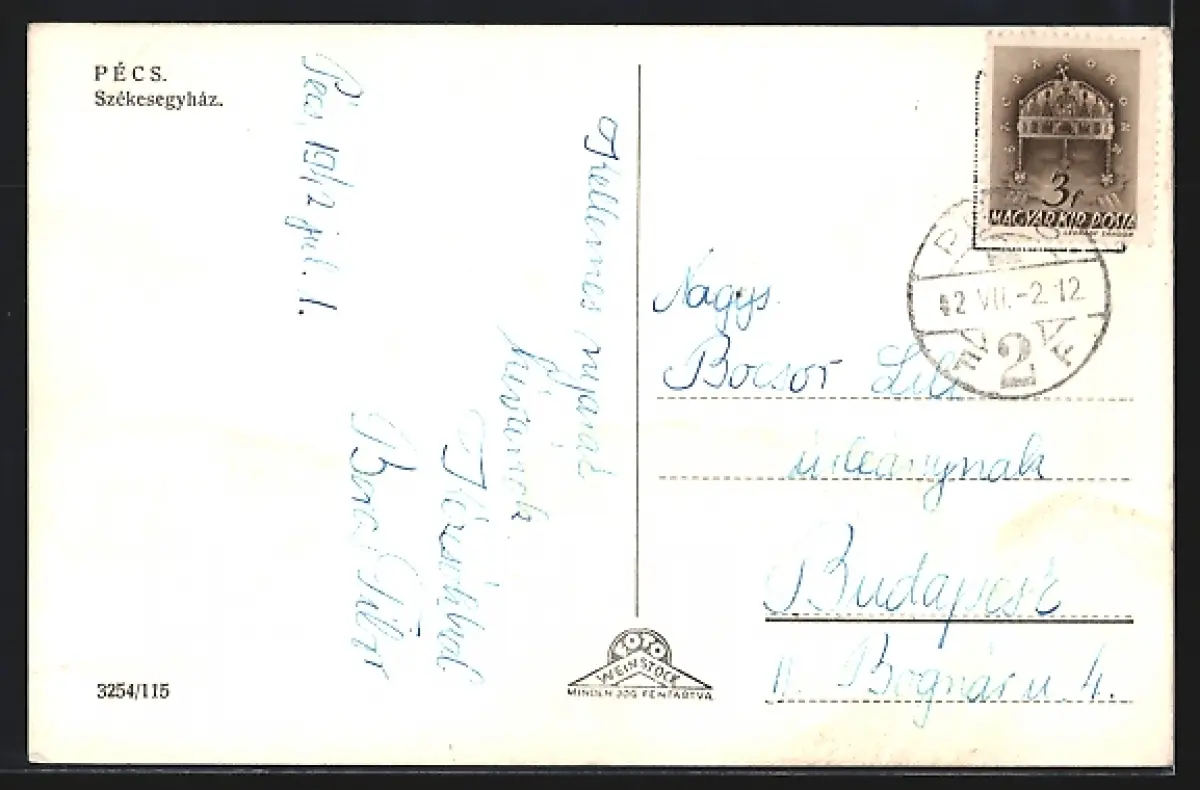 PÉCS.
Székesegyház.
Pécs, 1942 júl. 1.
Kellemes nyarat
kívánok
Kézcsókkal
Tibor
3254/115
FOTO
WEINSTOCK
MINDEN JOG FENTARTVA
SZENT KORONA
3f
MAGYAR KIR. POSTA
PÉCS
42 VII.-2.12
2
Nagys.
Bocsor Lili
úrleánynak
Budapest
II. Bognár u. 4.